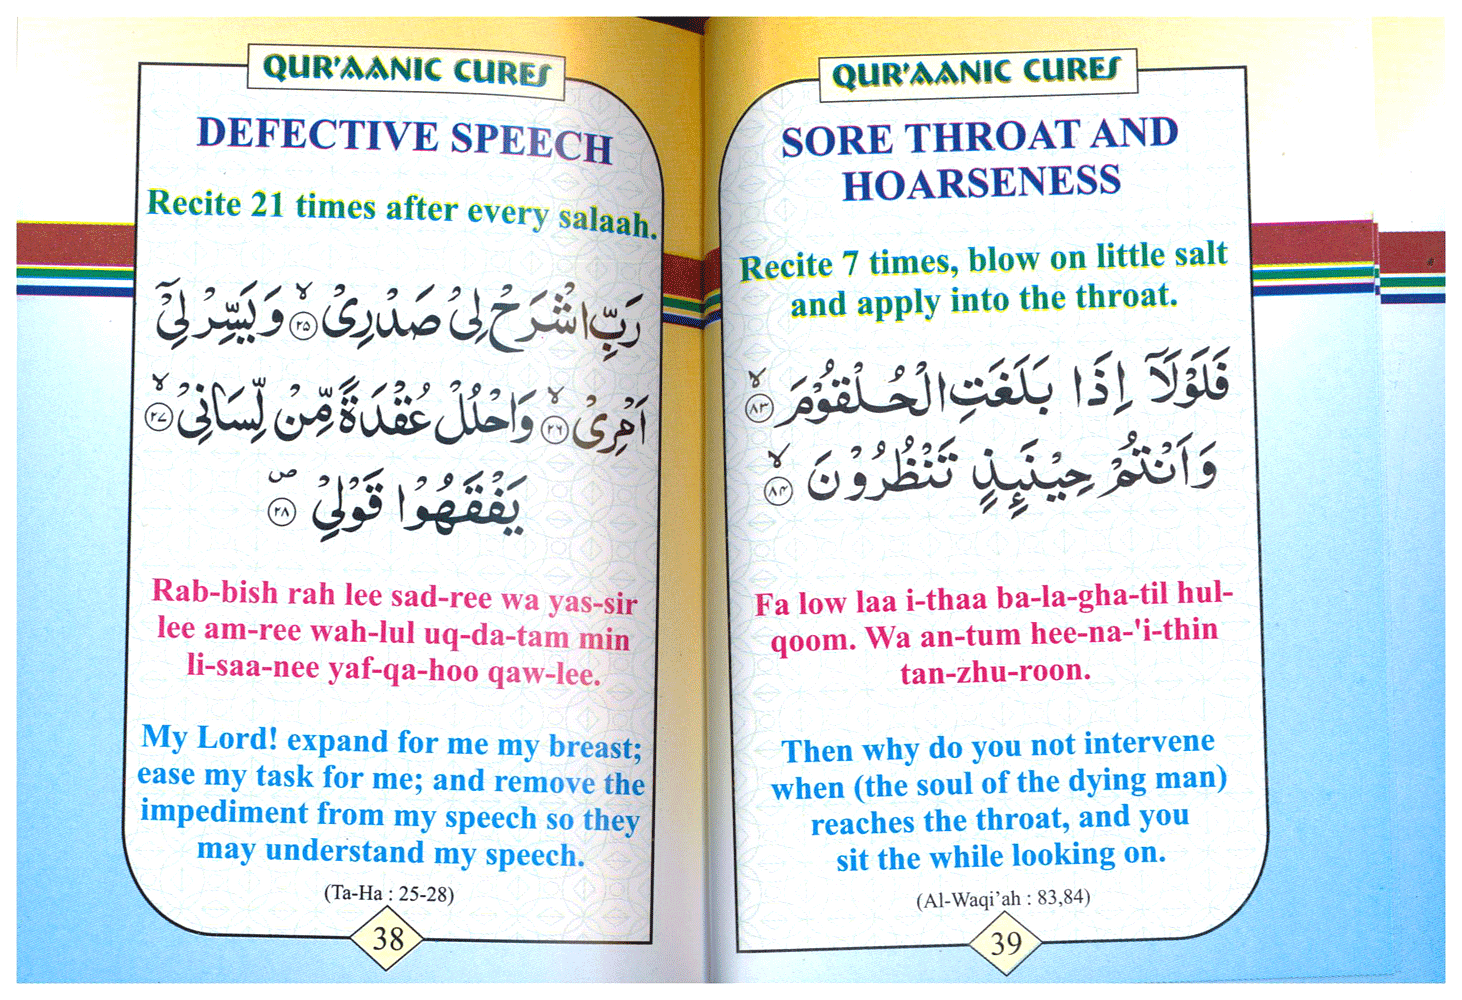 QUR'AANIC CURES
DEFECTIVE SPEECH
Recite 21 times after every salaah.
رَبِّ اشْرَحْ لِیْ صَدْرِیْ ۙ﴿۲۵﴾ وَیَسِّرْ لِیْۤ
اَمْرِیْ ۙ﴿۲۶﴾ وَاحْلُلْ عُقْدَةً مِّنْ لِّسَانِیْ ۙ﴿۲۷﴾
یَفْقَهُوْا قَوْلِیْ ۪﴿۲۸﴾
Rab-bish rah lee sad-ree wa yas-sir
lee am-ree wah-lul uq-da-tam min
li-saa-nee yaf-qa-hoo qaw-lee.
My Lord! expand for me my breast;
ease my task for me; and remove the
impediment from my speech so they
may understand my speech.
(Ta-Ha : 25-28)
38
QUR'AANIC CURES
SORE THROAT AND
HOARSENESS
Recite 7 times, blow on little salt
and apply into the throat.
فَلَوْلَاۤ اِذَا بَلَغَتِ الْحُلْقُوْمَ ۙ﴿۸۳﴾
وَاَنْتُمْ حِیْنَىِٕذٍ تَنْظُرُوْنَ ۙ﴿۸۴﴾
Fa low laa i-thaa ba-la-gha-til hul-
qoom. Wa an-tum hee-na-'i-thin
tan-zhu-roon.
Then why do you not intervene
when (the soul of the dying man)
reaches the throat, and you
sit the while looking on.
(Al-Waqi'ah : 83,84)
39